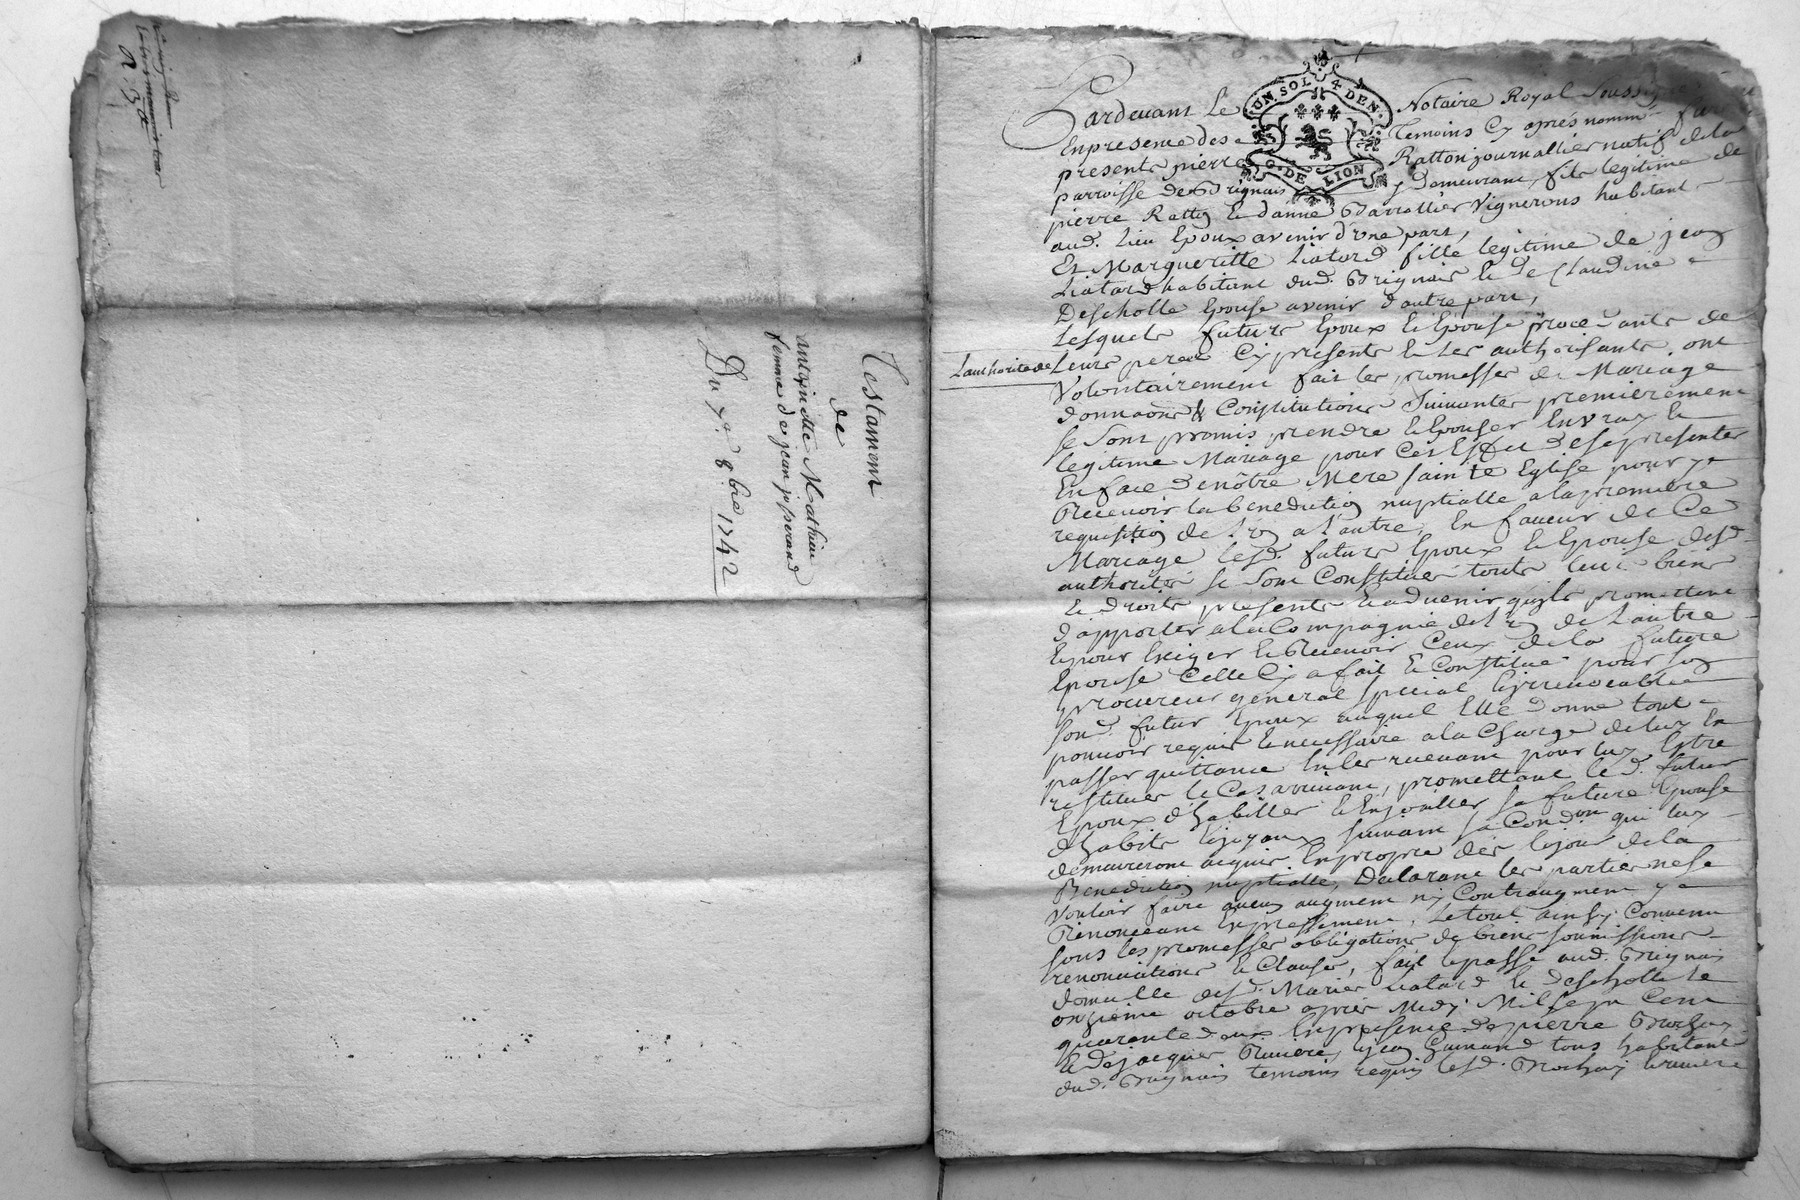 Testament
de
antoinette Mathieu
femme de jean jperand
Du 7e. 8bre 1742
UN SOL 4 DEN.
G. DE LION
Pardevant Le Notaire Royal Soussigné
Enpresence des Temoins Cy aprés nommés fut
presents pierre Ratton journallier natif de la
parroisse de Brignais y Demeurant, fils legitime de
pierre Ratton & danne Barrallier Vignerons habitant
aud. Lieu Epoux avenir d'une part,
Et Margueritte Liatard fille legitime de jean
Liatard habitant dud. Brignais & de Claudine
Descholle Epouse avenir d'autre part,
Lesquels futurs Epoux & Epouse procedants de
Lauthorité de Leurs peres Cy presents & Les authorisants, ont
Volontairement fait les promesses de Mariage
donnaõns & Constitutions Suivantes premierement
se Sont promis prendre & Epouser En vray &
legitime Mariage pour Cet Effet de se presenter
En face de nôtre Mere sainte Eglise pour y
Recevoir la benediction nuptialle a la premiere
requisition de l'un a l'autre, En faveur de Ce
Mariage lesd. futurs Epoux & Epouse desd.
authorités se Sont Constitués touts leurs biens
& droits presents & advenir quyls promettent
d'apporter a la Compagnie de l'un de L'autre
& pour Exiger & Recevoir Ceux de la future
Epouse Celle Cy a fait & Constitué pour son
procureur general special & irrevocable
sond. futur Epoux auquel Elle donne tout
pouvoir requis & necessaire a la Charge de luy En
passer quittance En les recevant pour luy Estre
restitués le Cas arrivant, promettant led. futur
Epoux d'habiller & Enjoailler sa future Epouse
d'habits & joyaux suivant sa Condõn qui luy
demeureront acquis En propre dés le jour de la
Benediction nuptialle, Declarant les parties ne se
Vouloir faire aucun augment ny Contraugment y
Renonceant Expressement, Le tout ainsy Convenu
sous les promesses obligations de biens soumissions
renonciations & Clauses, fait & passé aud. Brignais
domicille desd. Mariés Liatard & Descholle le
onzieme octobre aprés Midy Mil sept Cent
quarante deux En presence de pierre Brochay
& de jacques Riviere, & jean Guinand tous habitants
dud. Brignais temoins requis lesd. Brochay & riviere